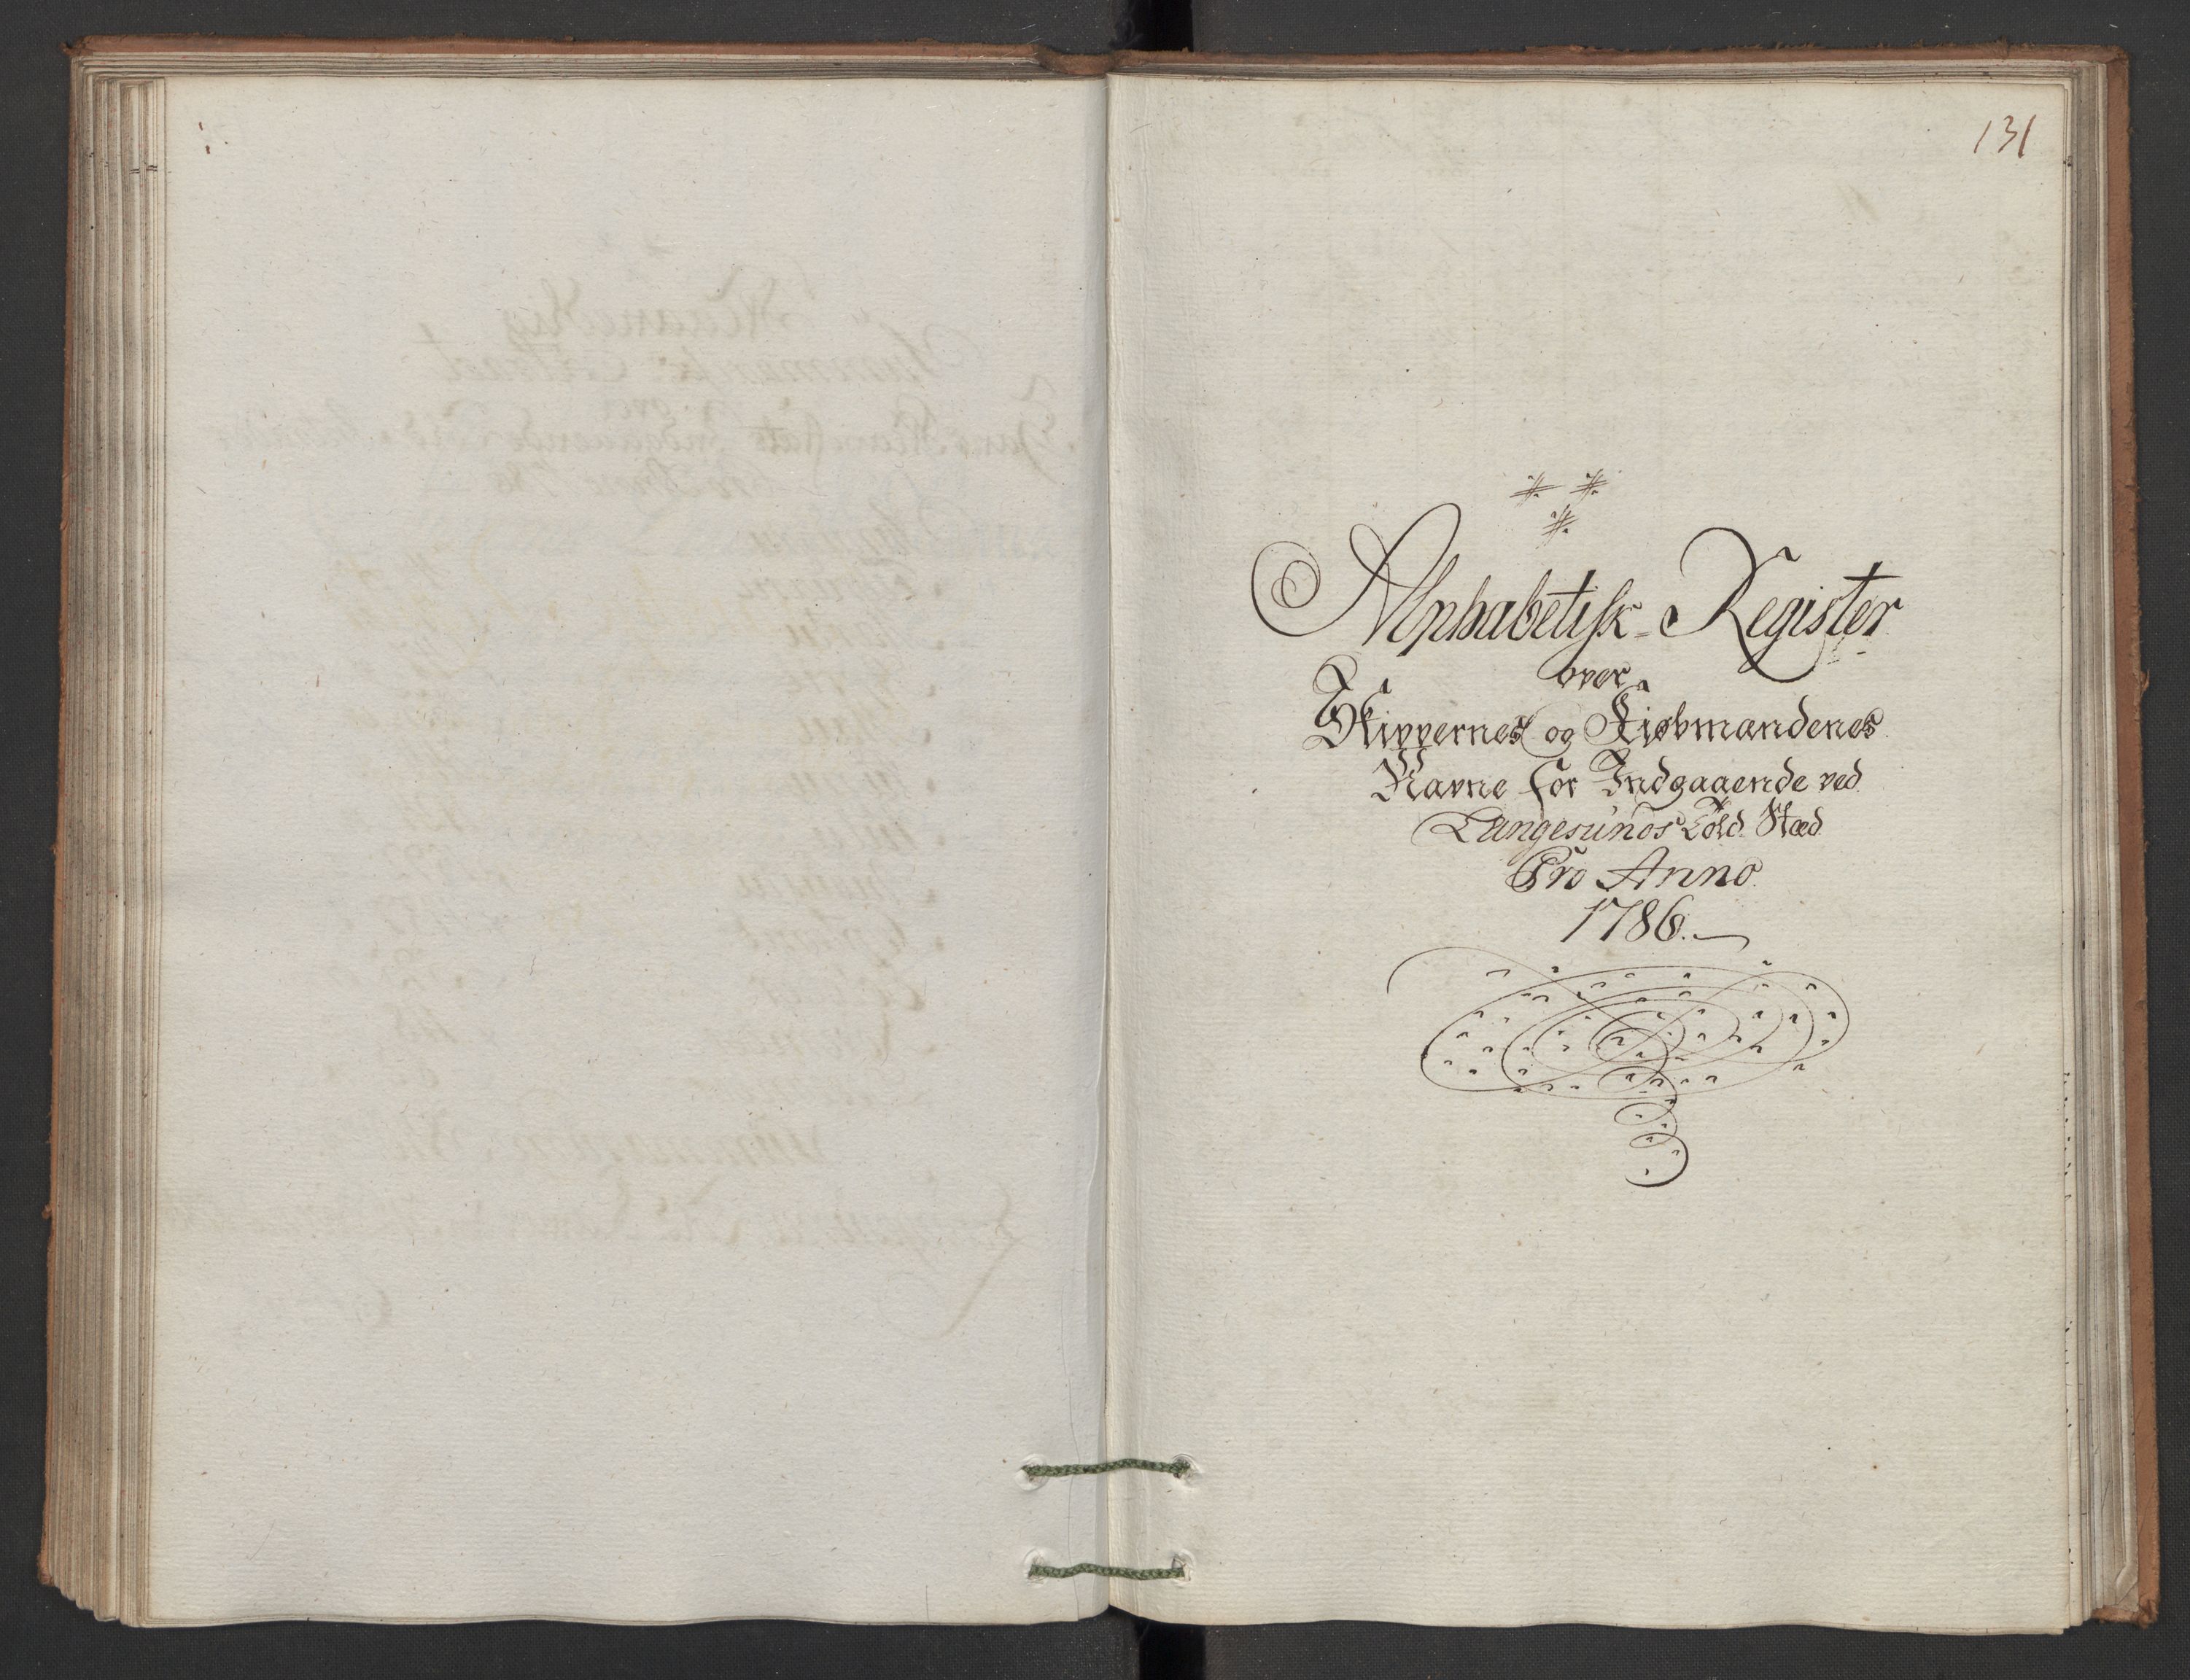 131
Alphabetisk Register
over
Skippernes og Kiøbmændenes
Navne for Indgaaende ved
Langesunds Told Stæd
Pro Anno
1786.